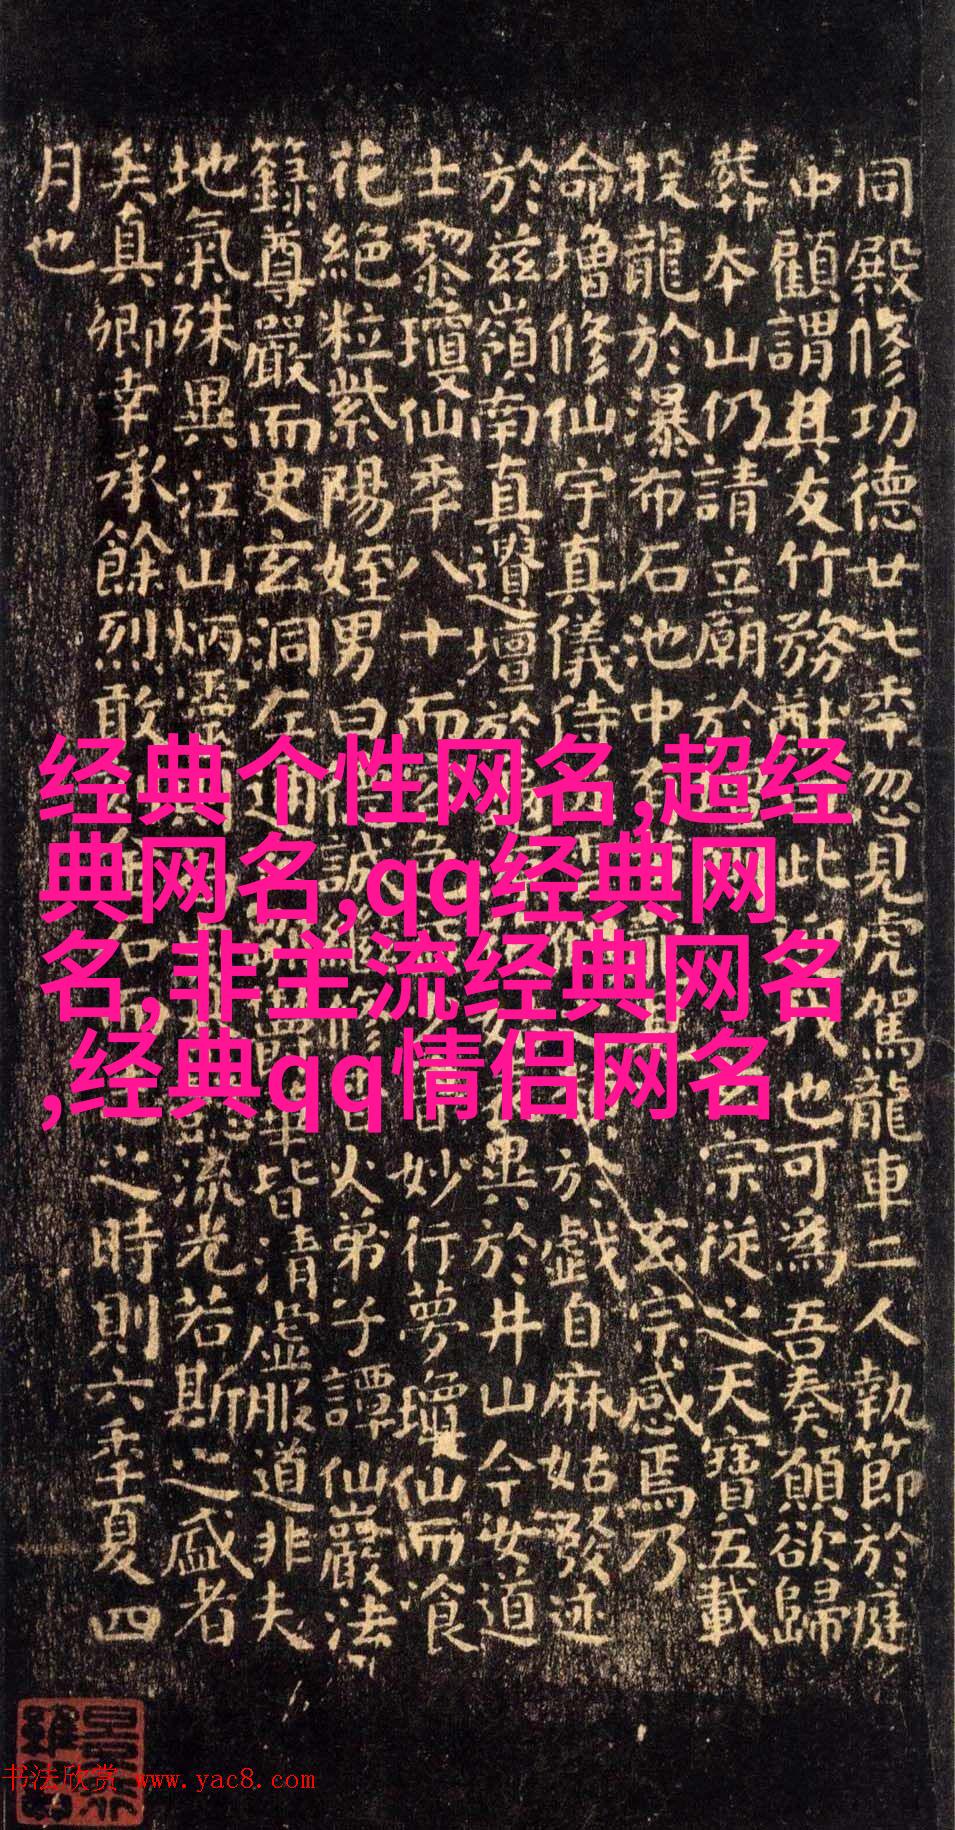 同殿修功德廿七年忽見虎駕龍車二人執節於庭
中顧謂其友竹務猷曰此迎我也可為吾奏願欲歸
葬本山仍請立廟於宗從之天寶五載
投龍於瀑布石池中有龍見玄宗感焉乃
命增修仙宇真儀侍於戲自麻姑發迹
於茲嶺南真遺壇於異於井山今女道
士黎瓊仙年八十而妙行夢瓊仙而飡
花絕粒紫陽姪男曰德誠繼修香火弟子譚仙巖法
籙尊嚴而史玄洞左通華皆清虛服道非夫
地氣殊異江山炳靈懿流光若斯之盛者
矣真卿幸承餘烈敢石而之時則六年夏四
月也
经典个性网名,超经
典网名,qq经典网
名,非主流经典网名
,经典qq情侣网名
书法欣赏 www.yac8.com